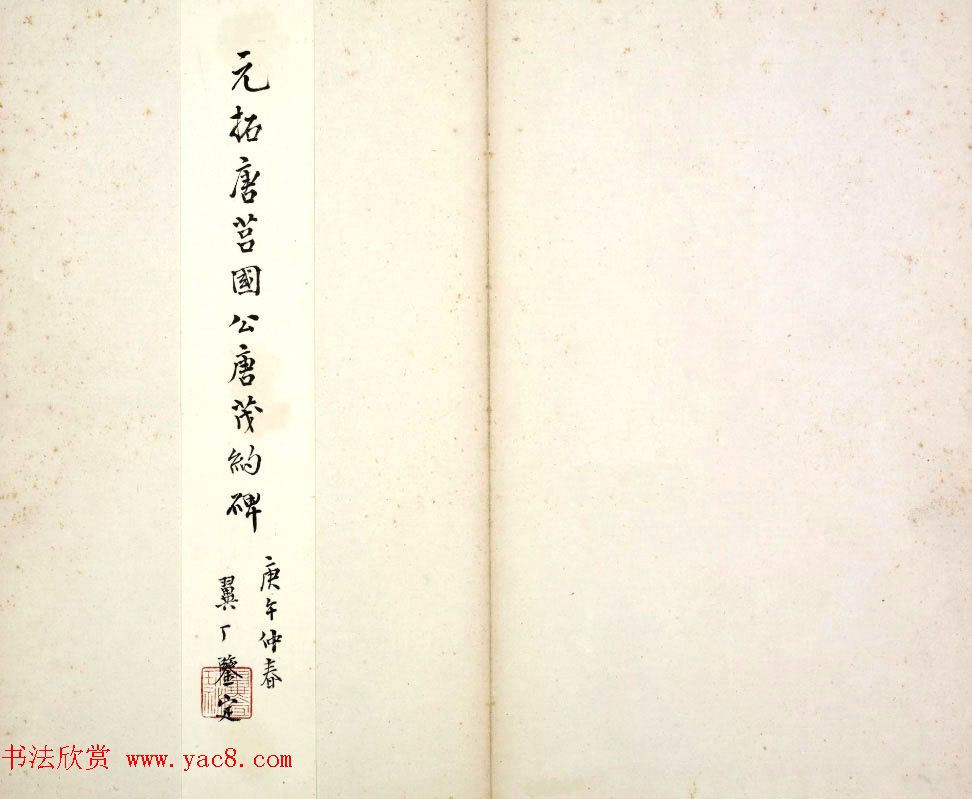 元拓唐莒國公唐茂約碑
庚午仲春
翼丁鑒定
书法欣赏 www.yac8.com